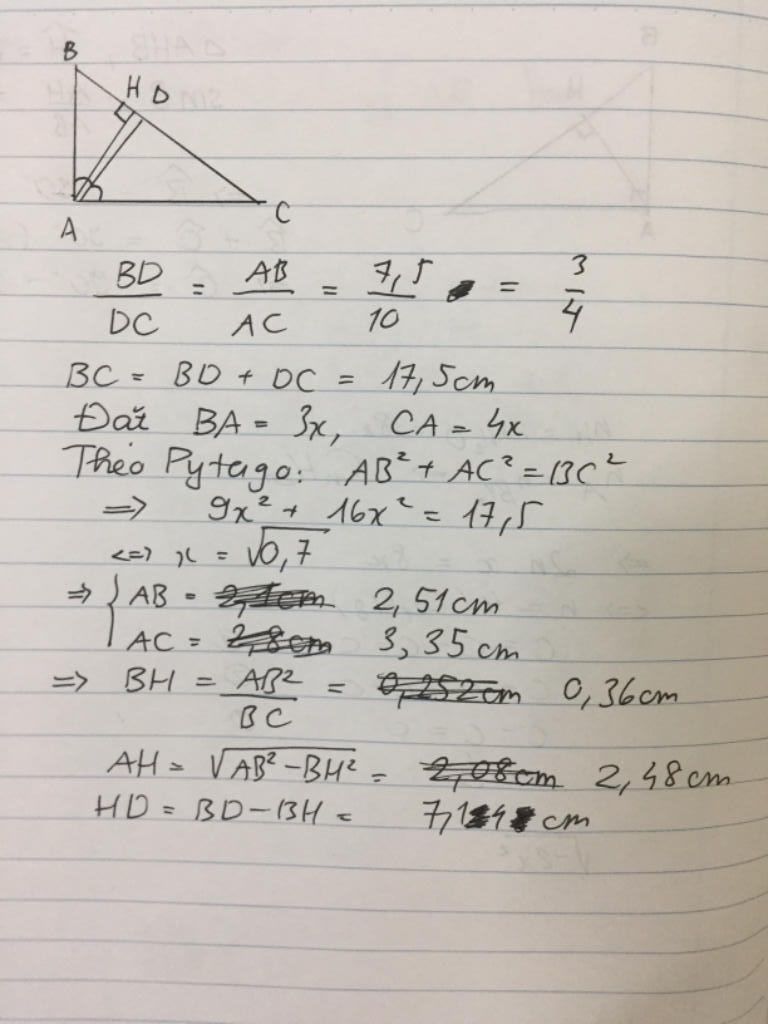 B
H D
A
C
BD/DC = AB/AC = 7,5/10 = 3/4
BC = BD + DC = 17,5cm
Đặt BA = 3x, CA = 4x
Theo Pytago: AB² + AC² = BC²
=> 9x² + 16x² = 17,5
<=> x = √0,7
=> { AB = 2,51cm
AC = 3,35cm
=> BH = AB²/BC = 0,36cm
AH = √(AB² - BH²) = 2,48cm
HD = BD - BH = 7,14 cm